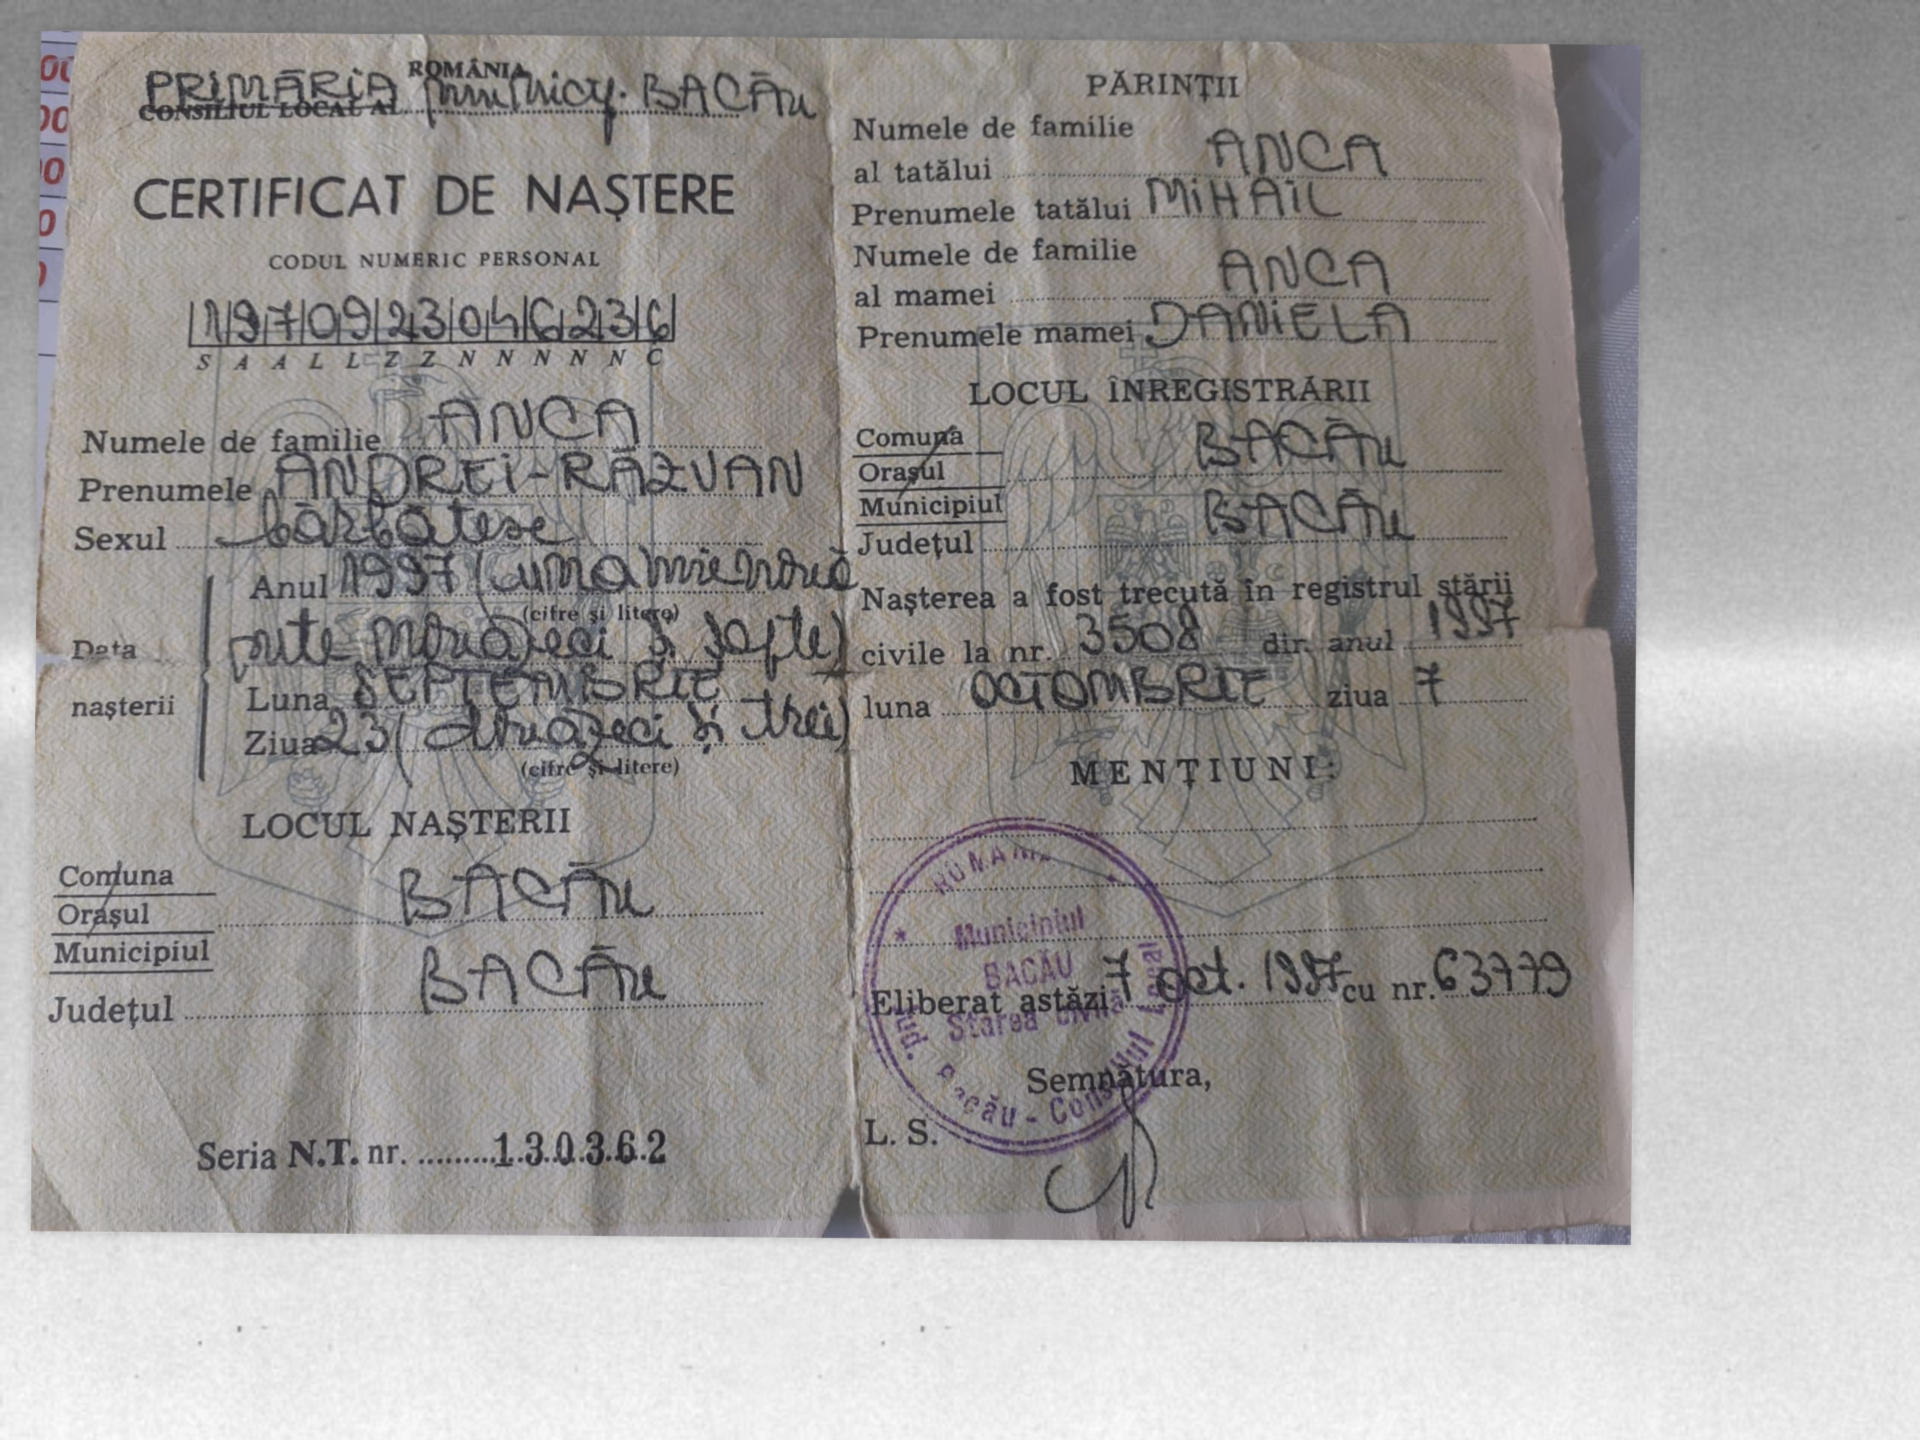 ROMÂNIA
PRIMĂRIA BACĂU
CONSILIUL LOCAL AL
CERTIFICAT DE NAȘTERE
CODUL NUMERIC PERSONAL
1970923046236
S A A L L Z Z N N N N N C
Numele de familie ANCA
Prenumele ANDREI-RĂZVAN
Sexul bărbătesc
Data nașterii
Anul 1997 (una mie nouă
(cifre și litere)
sute nouăzeci și șapte)
Luna SEPTEMBRIE
Ziua 23 (douăzeci și trei)
(cifre și litere)
LOCUL NAȘTERII
Comuna
Orașul BACĂU
Municipiul
Județul BACĂU
Seria N.T. nr. 130362
PĂRINȚII
Numele de familie
al tatălui ANCA
Prenumele tatălui MIHAIL
Numele de familie
al mamei ANCA
Prenumele mamei DANIELA
LOCUL ÎNREGISTRĂRII
Comuna
Orașul BACĂU
Municipiul
Județul BACĂU
Nașterea a fost trecută în registrul stării
civile la nr. 3508 din anul 1997
luna OCTOMBRIE ziua 7
MENȚIUNI:
ROMÂNIA
Municipiul
BACĂU
Starea civilă
Jud. Bacău - Consiliul Local
Eliberat astăzi 7 oct. 1997 cu nr. 63779
Semnătura,
L. S.